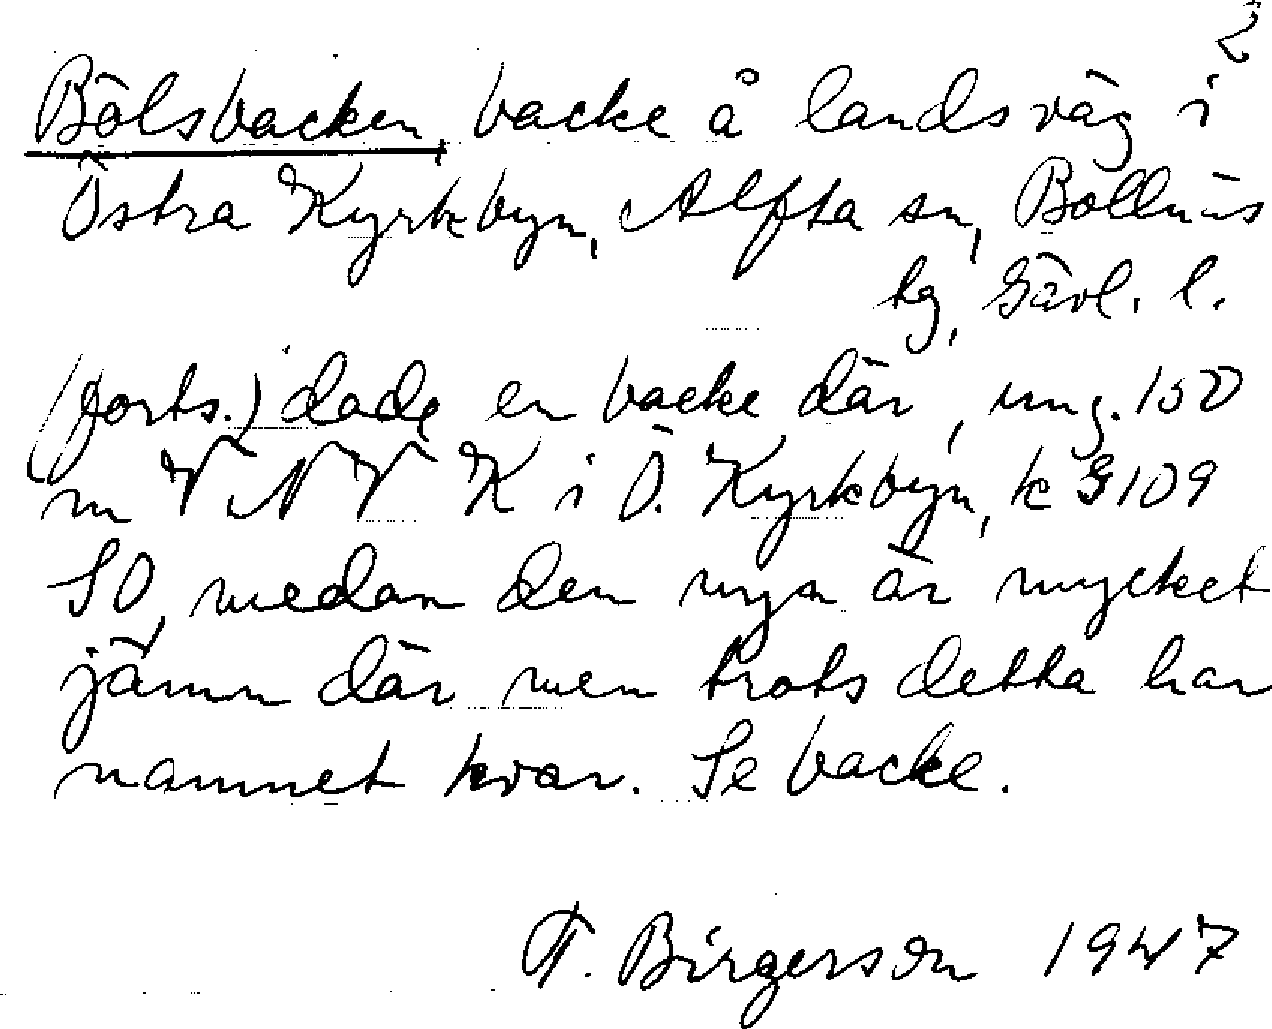 2
Bölsbacken, backe å landsväg i
Östra Kyrkbyn, Alfta sn, Bollnäs
tg, Gävl. l.
(forts.) dade en backe där, ung. 150
m VNV K i Ö. Kyrkbyn, k G109
SO, medan den nya är mycket
jämn där men trots detta har
namnet kvar. Se backe.
F. Birgerson 1947